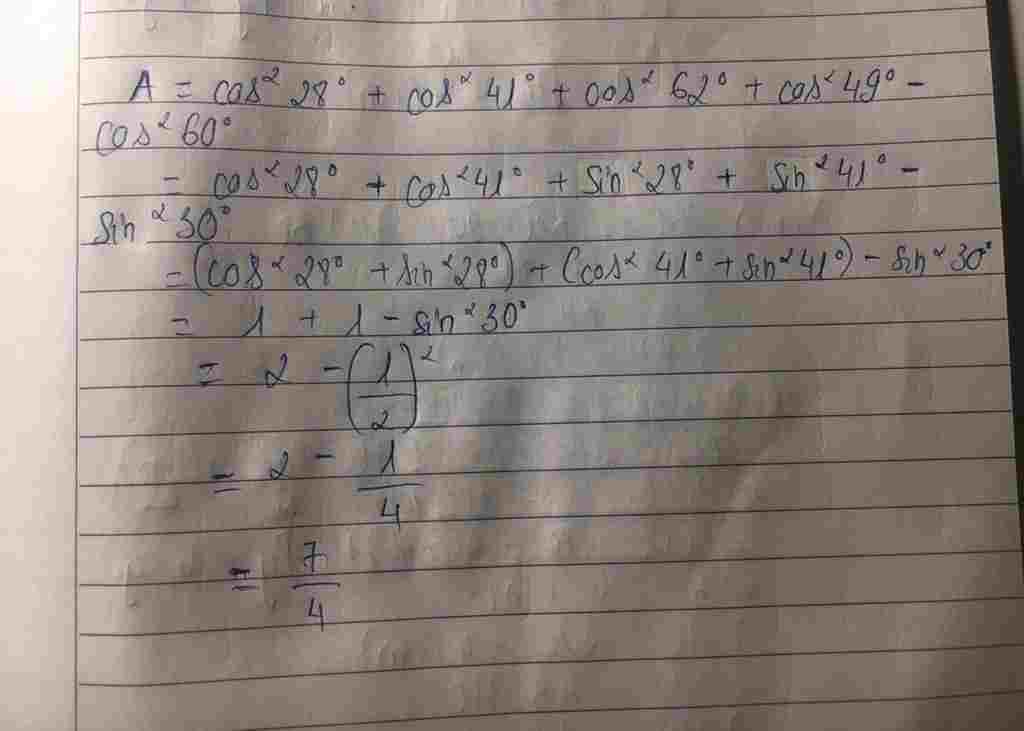 A = cos² 28° + cos² 41° + cos² 62° + cos² 49° −
cos² 60°
= cos² 28° + cos² 41° + sin² 28° + sin² 41° −
sin² 30°
= (cos² 28° + sin² 28°) + (cos² 41° + sin² 41°) − sin² 30°
= 1 + 1 − sin² 30°
= 2 − (1/2)²
= 2 − 1/4
= 7/4